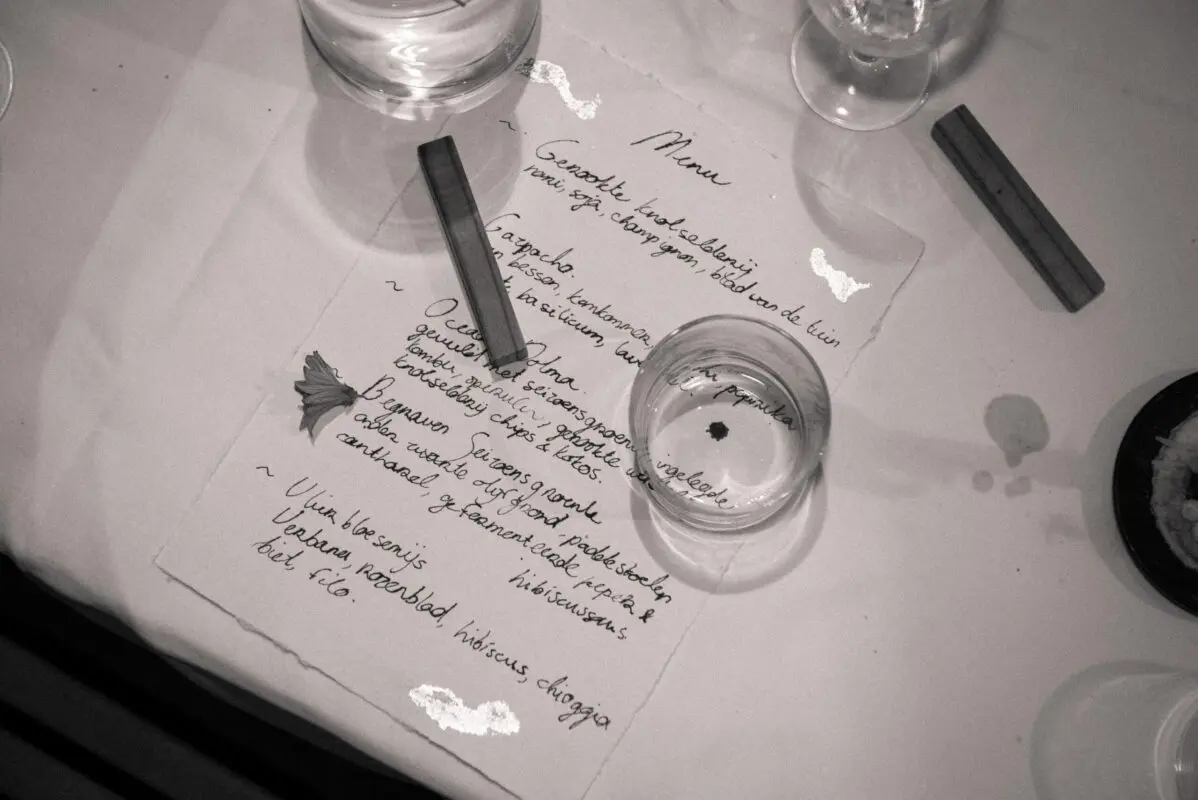 Menu
~ Gerookte knolselderij
nori, soja, champignon, blad van de tuin
Gazpacho.
bessen, komkommer, paprika
basilicum,
~ Ocean Dolma
gevuld met seizoensgroen ingelegde
kombu, gerookte
knolselderij chips & kokos.
~ Begraven Seizoensgroente
onder zwarte olijf grond, paddestoelen
cantharel, gefermenteerde peper &
hibiscussaus
~ Vlierbloesemijs
Verbana, rozenblad, hibiscus, chioggia
biet, filo.